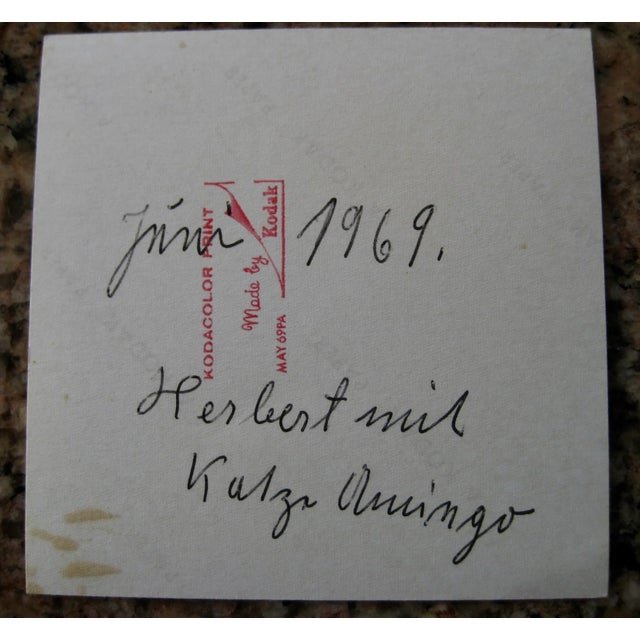 Juni 1969.
Herbert mit
Katze Amingo
KODACOLOR PRINT
Made by
Kodak
MAY 69PA